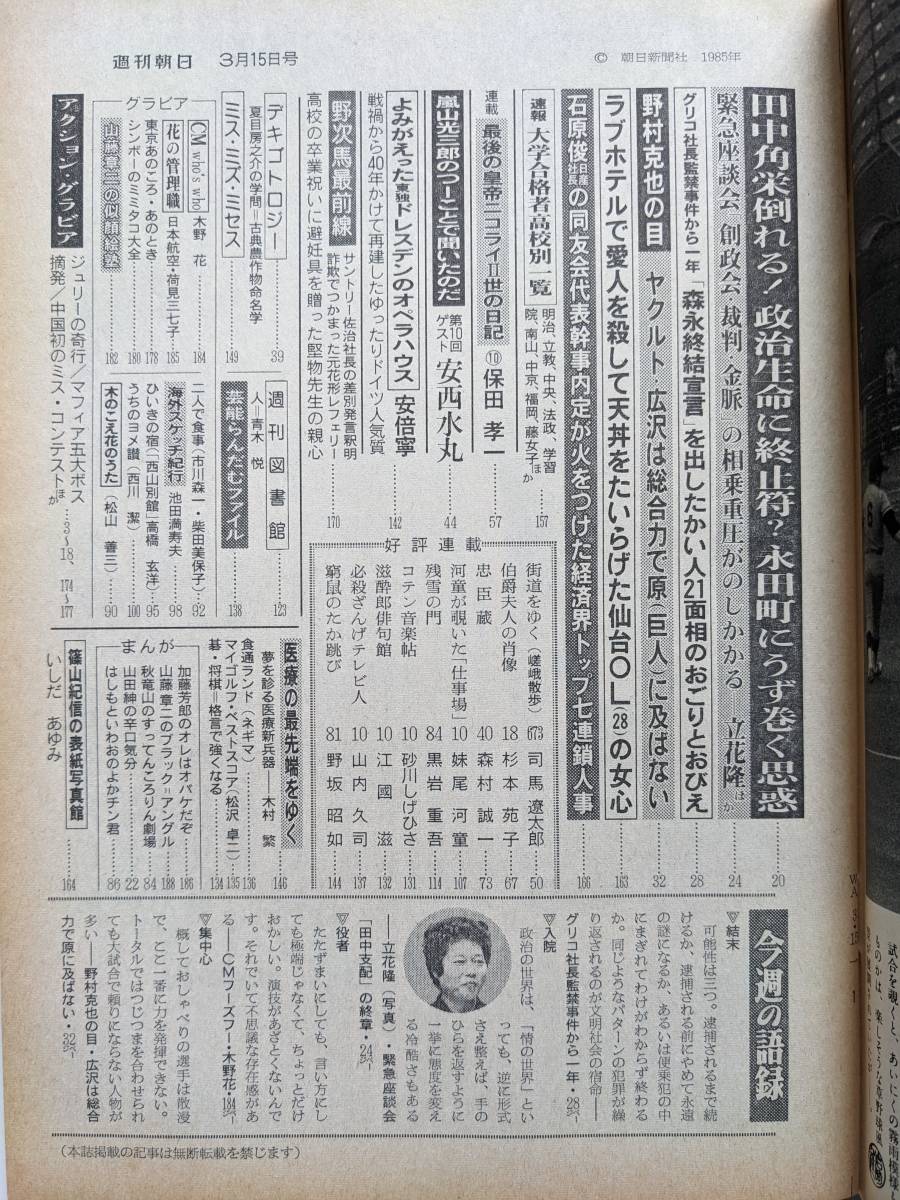 週刊朝日 3月15日号
© 朝日新聞社 1985年
田中角栄倒れる!政治生命に終止符?永田町にうず巻く思惑 20
緊急座談会 「創政会・裁判・金脈」の相乗重圧がのしかかる 立花隆ほか 24
グリコ社長監禁事件から一年 「森永終結宣言」を出したかい人21面相のおごりとおびえ 28
野村克也の目 ヤクルト・広沢は総合力で原(巨人)に及ばない 32
ラブホテルで愛人を殺して天井をたいらげた仙台OL(28)の女心 163
石原俊日産社長の同友会代表幹事内定が火をつけた経済界トップ七連鎖人事 166
速報 大学合格者高校別一覧 明治、立教、中央、法政、学習
院、南山、中京、福岡、藤女子ほか 157
連載 最後の皇帝ニコライII世の日記 ⑩ 保田孝一 57
嵐山光三郎のつーことで聞いたのだ 第10回 ゲスト 安西水丸 44
よみがえった東独ドレスデンのオペラハウス 安倍寧
戦禍から40年かけて再建したゆったりドイツ人気質 142
野次馬最前線 サントリー佐治社長の差別発言釈明
詐欺でつかまった元花形レフェリー
高校の卒業祝いに避妊具を贈った堅物先生の親心 170
好評連載
街道をゆく(嵯峨散歩) 673 司馬遼太郎 50
伯爵夫人の肖像 18 杉本苑子 67
忠臣蔵 40 森村誠一 73
河童が覗いた「仕事場」 10 妹尾河童 107
残雪の門 84 黒岩重吾 114
コテン音楽帖 10 砂川しげひさ 131
滋酔郎俳句館 10 江國滋 132
必殺ざんげテレビ人 10 山内久司 137
窮鼠のたか跳び 81 野坂昭如 144
デキゴトロジー 39
夏目房之介の学問=古典農作物命名学
ミス・ミズ・ミセス 149
週刊図書館 123
人=青木 悦
芸能らんだむファイル 138
グラビア
CM who's who 木野 花 184
花の管理職 日本航空・荷見三七子 185
東京あのころ・あのとき 178
シンボーのミミタコ大全 180
山藤章二の似顔絵塾 182
二人で食事(市川森一・柴田美保子) 92
海外スケッチ紀行 池田満寿夫 98
ひいきの宿(「西山別館」高橋 玄洋) 95
うちのヨメ讃(西川 潔) 100
木のこえ花のうた(松山 善三) 90
アクション・グラビア ジュリーの奇行/マフィア五大ボス
摘発/中国初のミス・コンテストほか 3〜18、174〜177
医療の最先端をゆく 146
夢を診る医療新兵器 木村 繁
食通ランド(ネギマ) 136
マイゴルフ・ベストスコア(松沢 卓二) 135
碁・将棋=格言で強くなる 134
まんが
加藤芳郎のオレはオバケだぞ 186
山藤章二のブラック=アングル 188
秋竜山のすってんころりん劇場 84
山田紳の辛口気分 22
はしもといわおのよかチン君 86
篠山紀信の表紙写真館 164
いしだ あゆみ
今週の語録
▽結末
可能性は三つ。逮捕されるまで続
けるか、逮捕される前にやめて永遠
の謎になるか、あるいは便乗犯の中
にまぎれてわけがわからず終わる
か。同じようなパターンの犯罪が繰
り返されるのが文明社会の宿命――
グリコ社長監禁事件から一年・28ページ
▽入院
政治の世界は、「情の世界」とい
っても、逆に形式
さえ整えば、手の
ひらを返すように
一挙に態度を変え
る冷酷さもある
――立花隆(写真)・緊急座談会
「田中支配」の終章・24ページ
▽役者
たたずまいにしても、言い方にし
ても極端じゃなくて、ちょっとだけ
おかしい。演技があざとくないんで
す。それでいて不思議な存在感があ
る――CMフーズフー・木野花・184ページ
▽集中心
概しておしゃべりの選手は散漫
で、ここ一番に力を発揮できない。
トータルではつじつまを合わせられ
ても大試合で頼りにならない人物が
多い――野村克也の目・広沢は総合
力で原に及ばない・32ページ
(本誌掲載の記事は無断転載を禁じます)